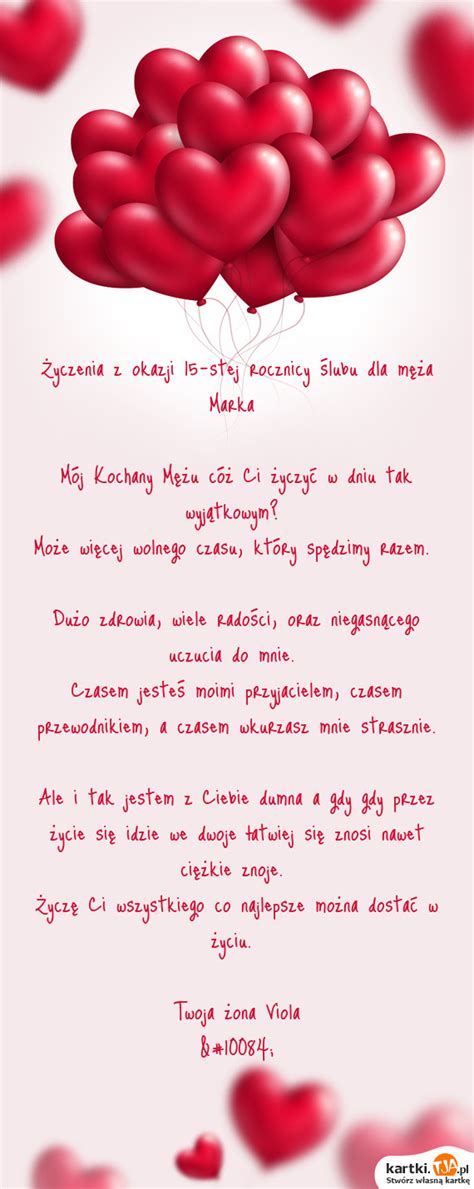 Życzenia z okazji 15-stej rocznicy ślubu dla męża
Marka
Mój Kochany Mężu cóż Ci życzyć w dniu tak
wyjątkowym?
Może więcej wolnego czasu, który spędzimy razem.
Dużo zdrowia, wiele radości, oraz niegasnącego
uczucia do mnie.
Czasem jesteś moimi przyjacielem, czasem
przewodnikiem, a czasem wkurzasz mnie strasznie.
Ale i tak jestem z Ciebie dumna a gdy gdy przez
życie się idzie we dwoje łatwiej się znosi nawet
ciężkie znoje.
Życzę Ci wszystkiego co najlepsze można dostać w
życiu.
Twoja żona Viola
&#10084;
kartki.TJA.pl
Stwórz własną kartkę